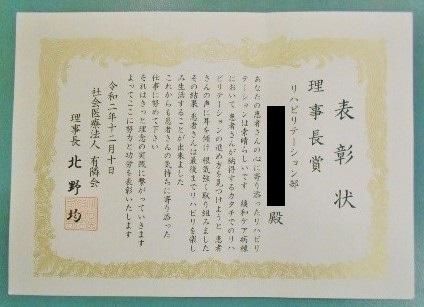 表彰状
理事長賞
リハビリテーション部
殿
あなたの患者さんの心に寄り添ったリハビリ
テーションは素晴らしいです 緩和ケア病棟
において 患者さんが納得するカタチでのリハ
ビリテーションの進め方を見つけようと 患者
さんの声に耳を傾け 根気強く取り組みました
その結果 患者さんは最後までリハビリを楽し
み生活することが出来ました
これからも患者さんの気持ちに寄り添った
仕事に努めて下さい
それはきっと理念の実践に繋がっていきます
よってここに努力と功労を表彰いたします
令和二年十二月十日
社会医療法人 有隣会
理事長 北野 均